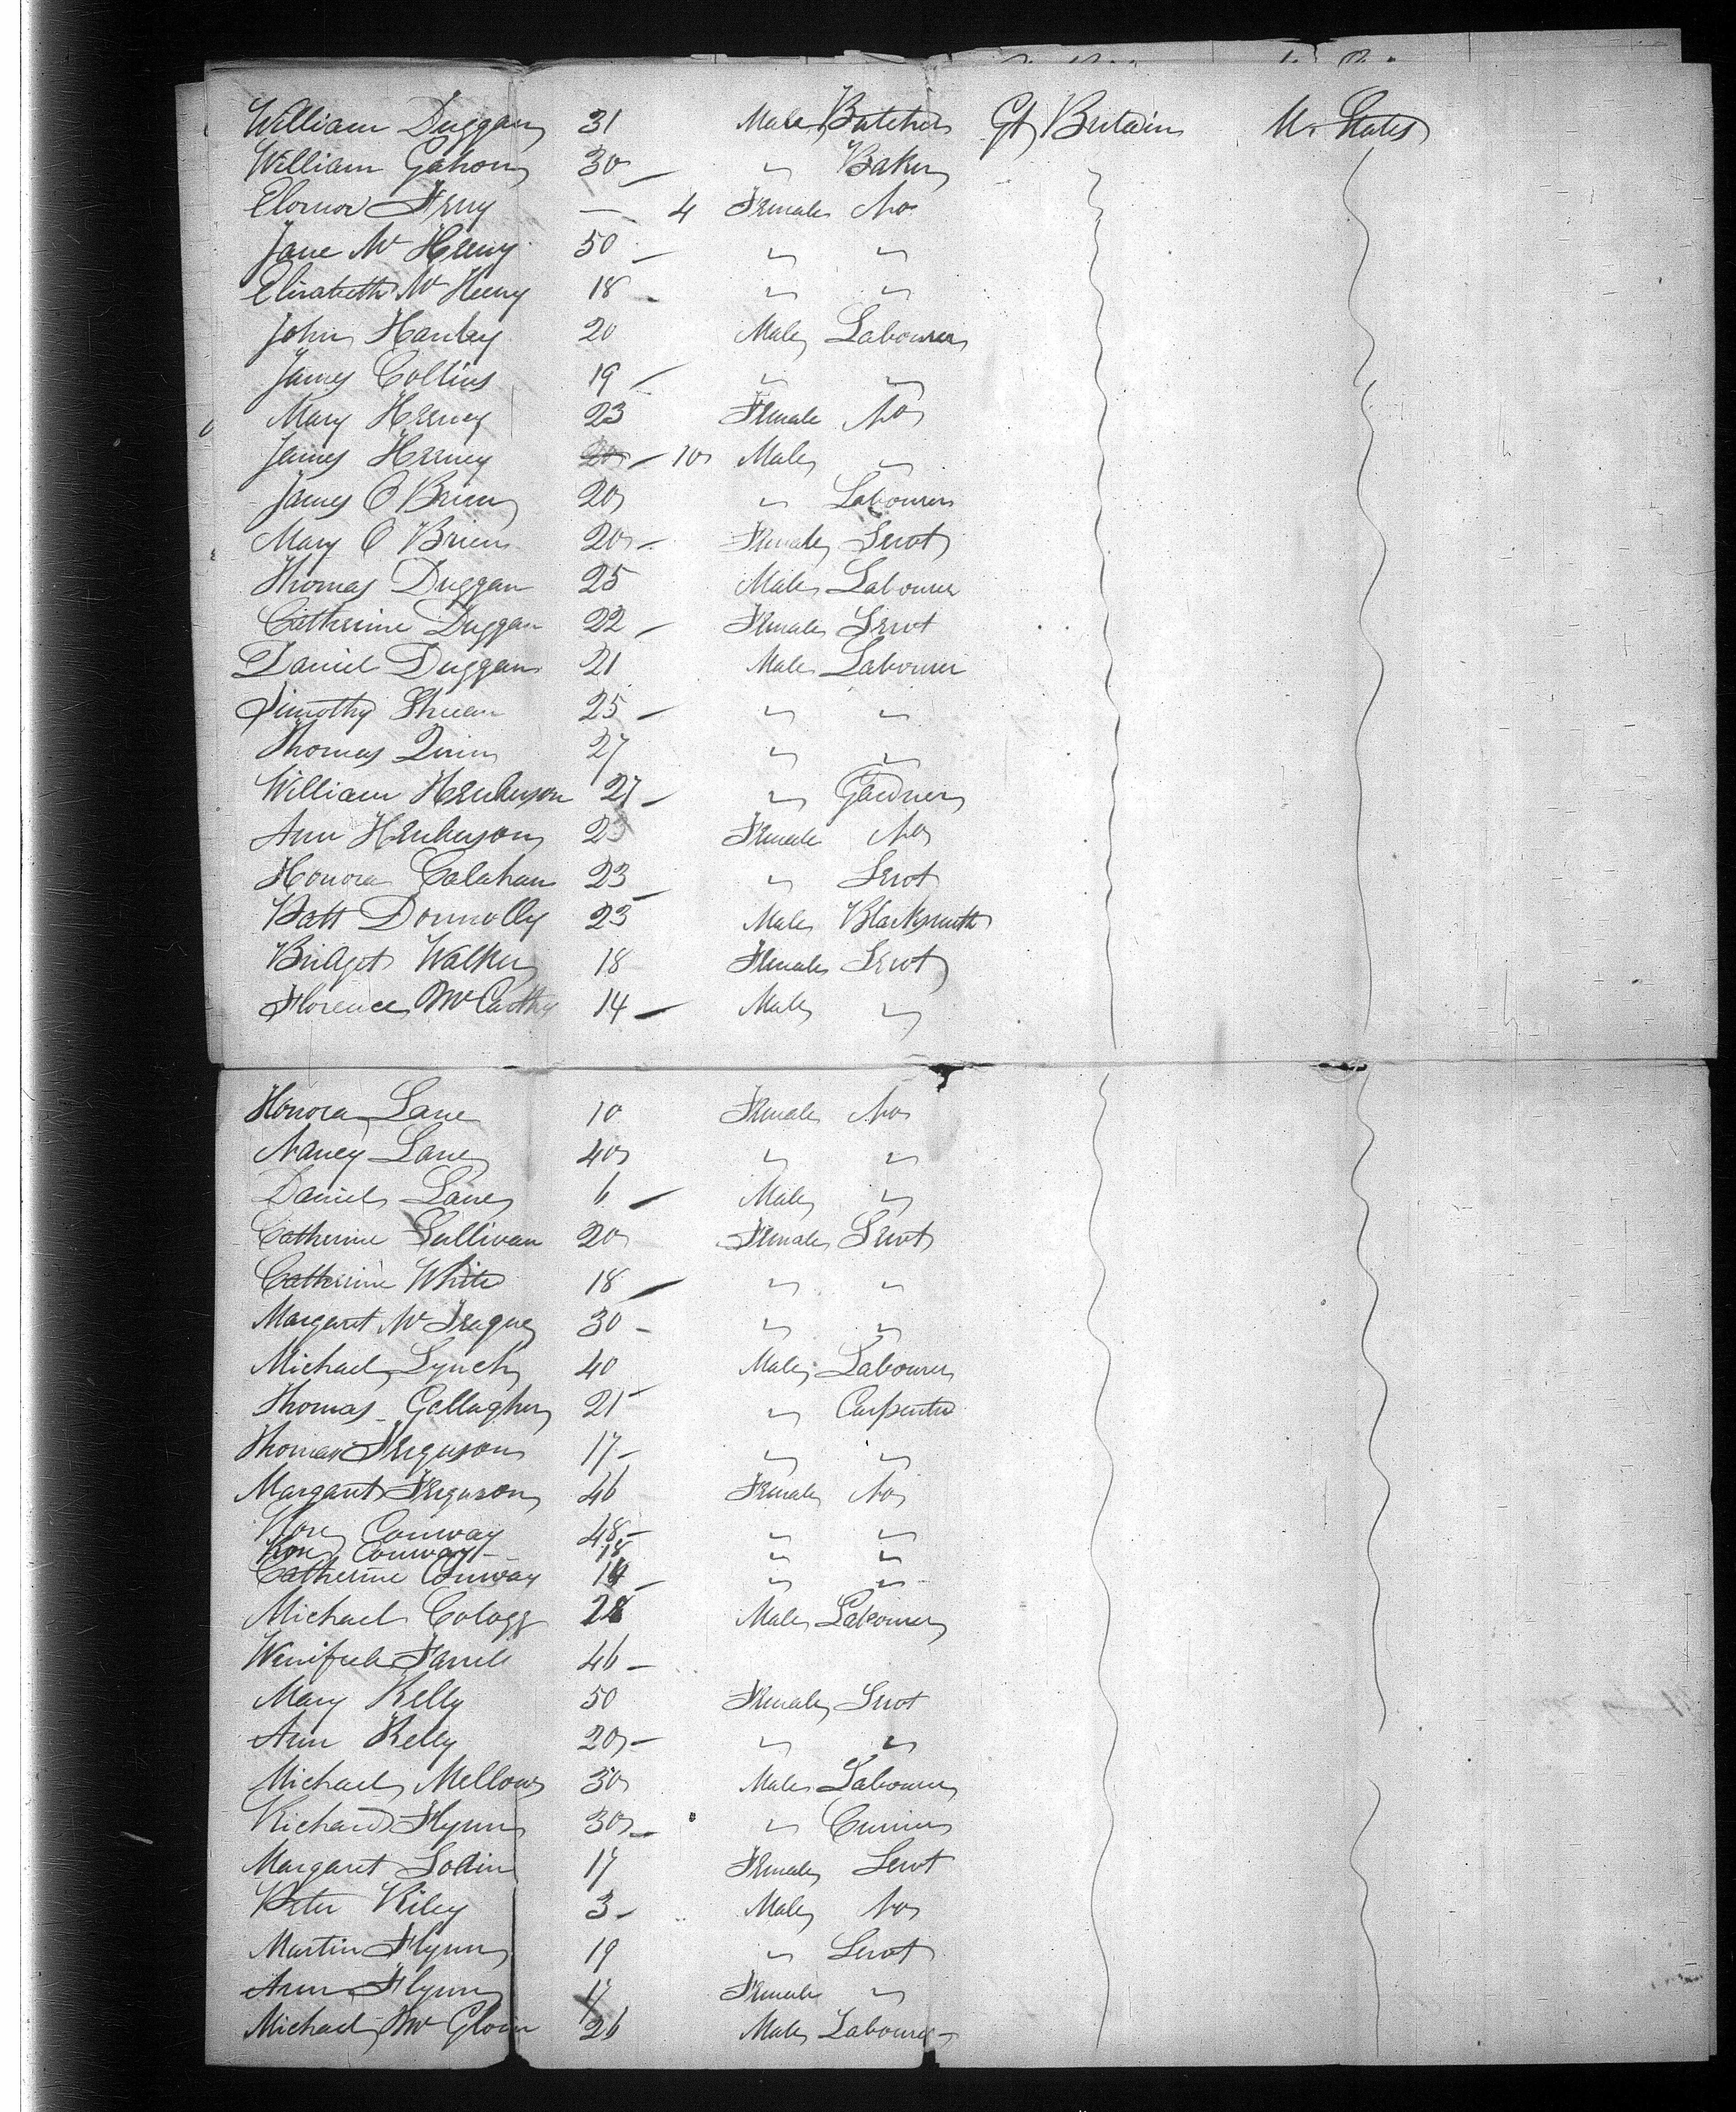 William Duggan 31 Male Butcher Gt Britain U. States
William Gahon 30 — " Baker
Elornor — 4 Female No
Jane Mc Henry 50 — " "
Elizabeth Mc Henry 18 - " "
John Hanley 20 Male Labourer
James Collins 19 — " "
Mary Herney 23 Female No
James Herney 20 — 10 Male "
James O Brien 20 " Labourer
Mary O Brien 20 - Female Servt
Thomas Duggan 25 Male Labourer
Catherine Duggan 22 — Female Servt
Daniel Duggan 21 Male Labourer
Timothy 25 — " "
Thomas Quin 27 " "
William Henherson 27 — " Gardner
Ann Henherson 23 Female No
Honora Calahan 23 — " Servt
Patt Donnolly 23 Male Blacksmith
Bridget Walker 18 Female Servt
Florence McCarthy 14 — Male "
Honora Lane 10 Female No
Nancy Lane 40 " "
Daniel Lane 6 — Male "
Catherine Sullivan 20 Female Servt
Catherine White 18 — " "
Margaret Mc 30 - " "
Michael Lynch 40 Male Labourer
Thomas Gallagher 21 - " Carpenter
Thomas Ferguson 17 - " "
Margaret Ferguson 46 Female No
Rose Conway 48 - " "
Rose Conway - 18 " "
Catherine Conway 14 - " "
Michael 28 Male Labourer
Winifred Farrell 46 -
Mary Kelly 50 Female Servt
Ann Kelly 20 - " "
Michael Mellow 30 Male Labourer
Richard Flynn 30 - " Currier
Margaret 17 Female Servt
Peter Riley 3 - Male No
Martin Flynn 19 " Servt
Ann Flynn 17 Female "
Michael Mc Gloin 26 Male Labourer -